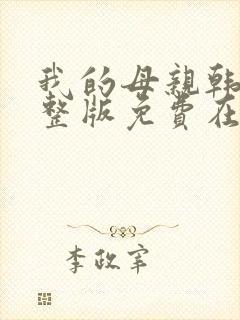 我的母親韩
整版免費在
李政宰